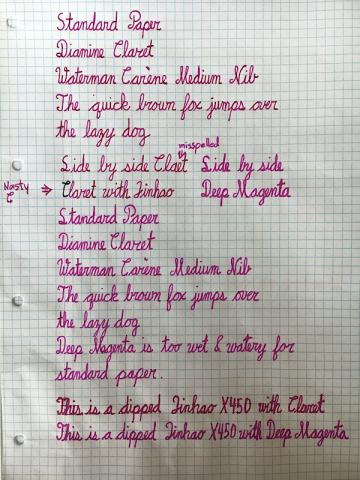 Standard Paper
Diamine Claret
Waterman Carène Medium Nib
The quick brown fox jumps over
the lazy dog
misspelled
Side by side Claet Side by side
Nasty C → Claret with Jinhao Deep Magenta
Standard Paper
Diamine Claret
Waterman Carène Medium Nib
The quick brown fox jumps over
the lazy dog
Deep Magenta is too wet & watery for
standard paper.
This is a dipped Jinhao X450 with Claret
This is a dipped Jinhao X450 with Deep Magenta